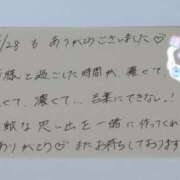 /28 も ありがとうございました♡
様と過ごした時間が、濃くて、
く、濃くて…言葉にできない!
敵な思い出を一緒に作ってくれ
ありがとう♡ またお待ちしております